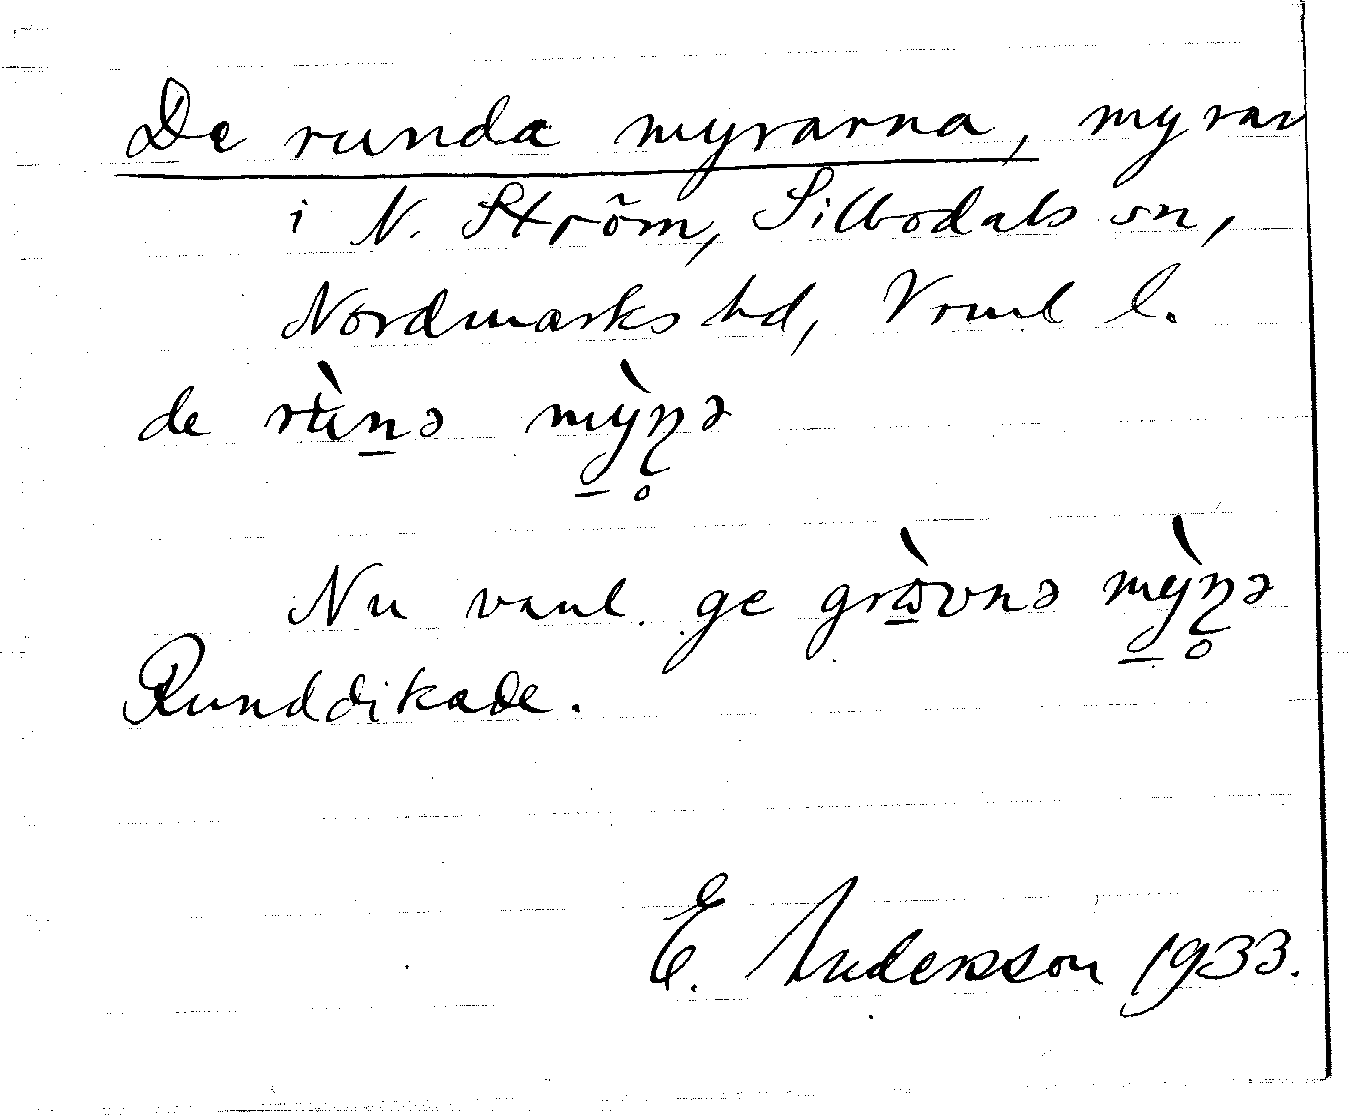 De runda myrarna, myrar
i N. Ström, Silbodals sn,
Nordmarks hd, Vrml l.
de rʉ̀n̲ə mỳ̲n̥ə
Nu vanl. ge grɷ̲̀vnə mỳ̲n̥ə
Runddikade.
E. Andersson 1933.